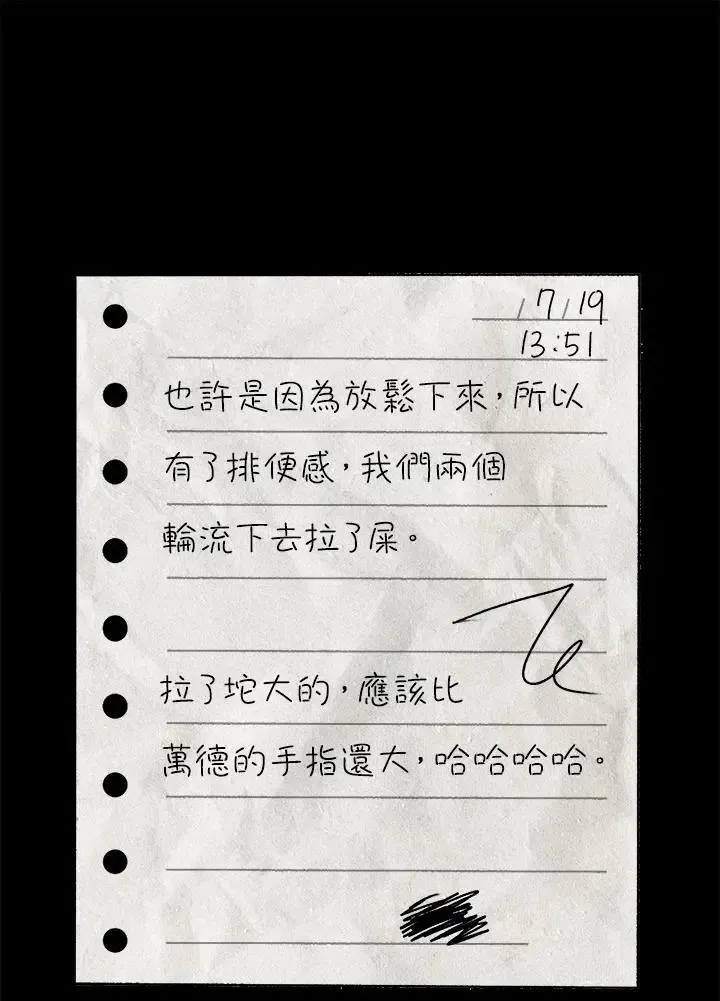 /7/19
13:51
也許是因為放鬆下來，所以
有了排便感，我們兩個
輪流下去拉了屎。
拉了坨大的，應該比
萬德的手指還大，哈哈哈哈。